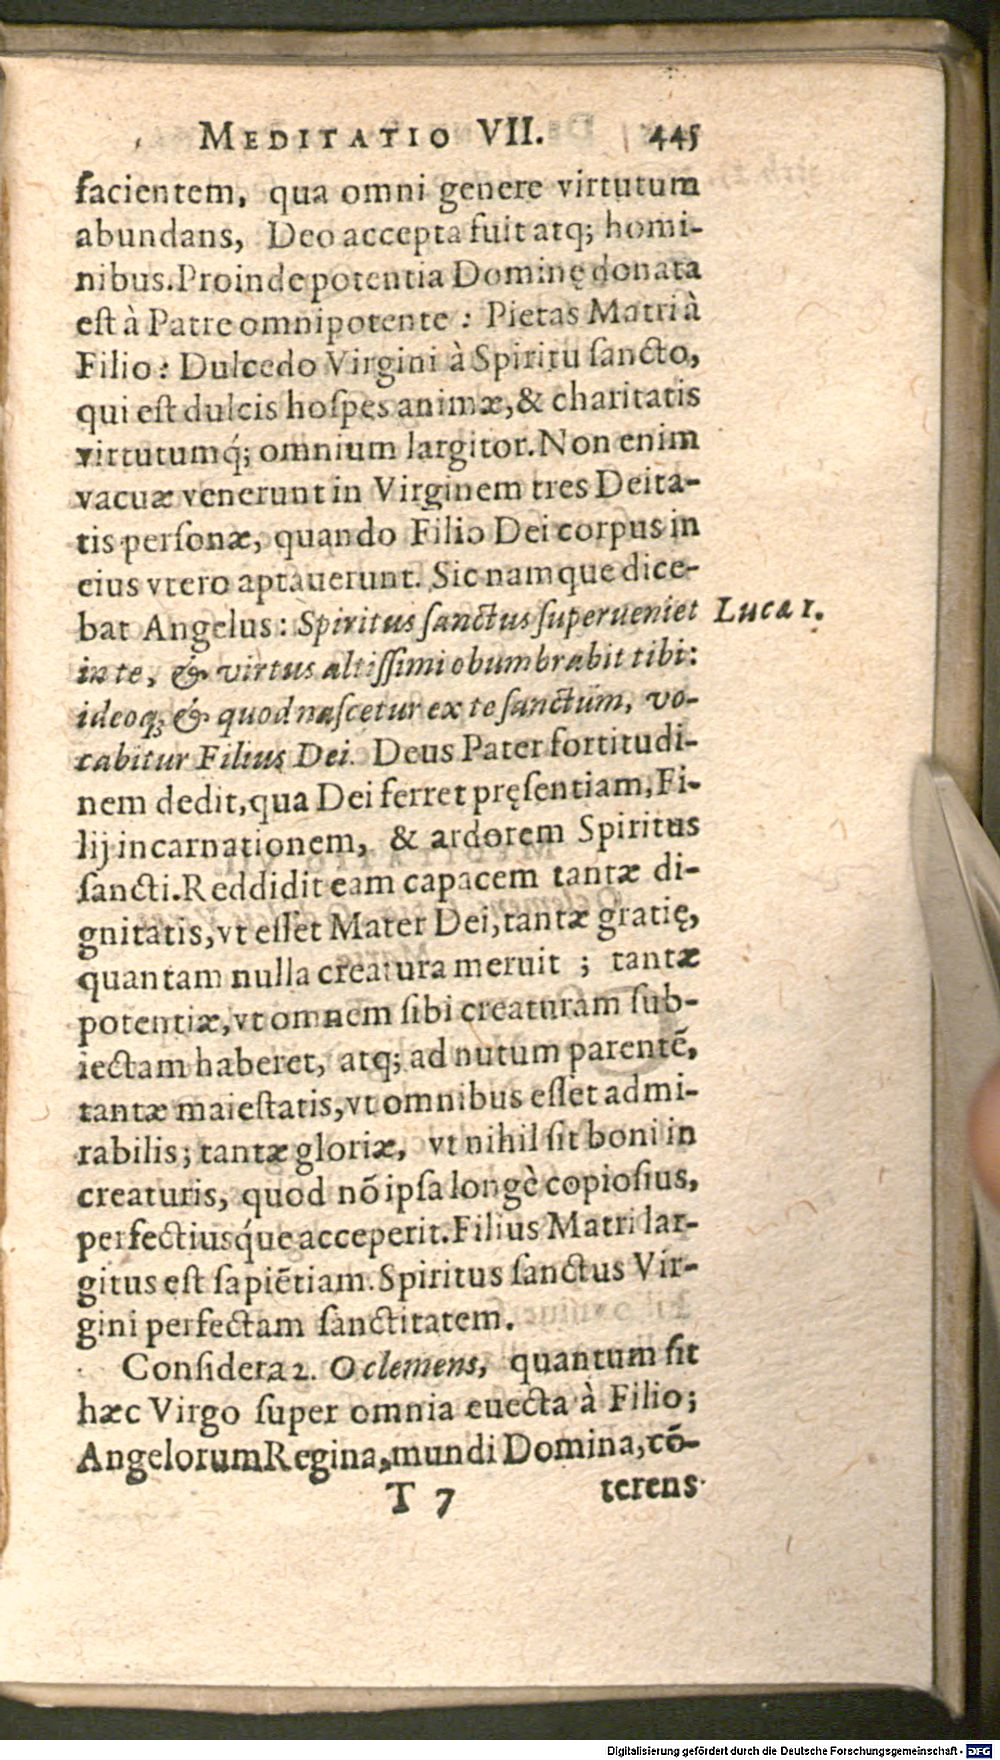 MEDITATIO VII. 445
facientem, qua omni genere virtutum
abundans, Deo accepta fuit atq; homi-
nibus. Proinde potentia Dominę donata
est à Patre omnipotente : Pietas Matri à
Filio : Dulcedo Virgini à Spiritu sancto,
qui est dulcis hospes animæ, & charitatis
virtutumq́; omnium largitor. Non enim
vacuæ venerunt in Virginem tres Deita-
tis personæ, quando Filio Dei corpus in
eius vtero aptauerunt. Sic namque dice-
bat Angelus : Spiritus sanctus superueniet Lucæ 1.
in te, & virtus altissimi obumbrabit tibi:
ideoq; & quod nascetur ex te sanctum, vo-
cabitur Filius Dei. Deus Pater fortitudi-
nem dedit, qua Dei ferret pręsentiam, Fi-
lij incarnationem, & ardorem Spiritus
sancti. Reddidit eam capacem tantæ di-
gnitatis, vt esset Mater Dei, tantæ gratię,
quantam nulla creatura meruit ; tantæ
potentiæ, vt omnem sibi creaturam sub-
iectam haberet, atq; ad nutum parentē,
tantæ maiestatis, vt omnibus esset admi-
rabilis; tantæ gloriæ, vt nihil sit boni in
creaturis, quod nō ipsa longè copiosius,
perfectiusq́ue acceperit. Filius Matri lar-
gitus est sapiētiam. Spiritus sanctus Vir-
gini perfectam sanctitatem.
Considera 2. O clemens, quantum sit
hæc Virgo super omnia euecta à Filio;
Angelorum Regina, mundi Domina, cō-
T 7 terens
Digitalisierung gefördert durch die Deutsche Forschungsgemeinschaft - DFG